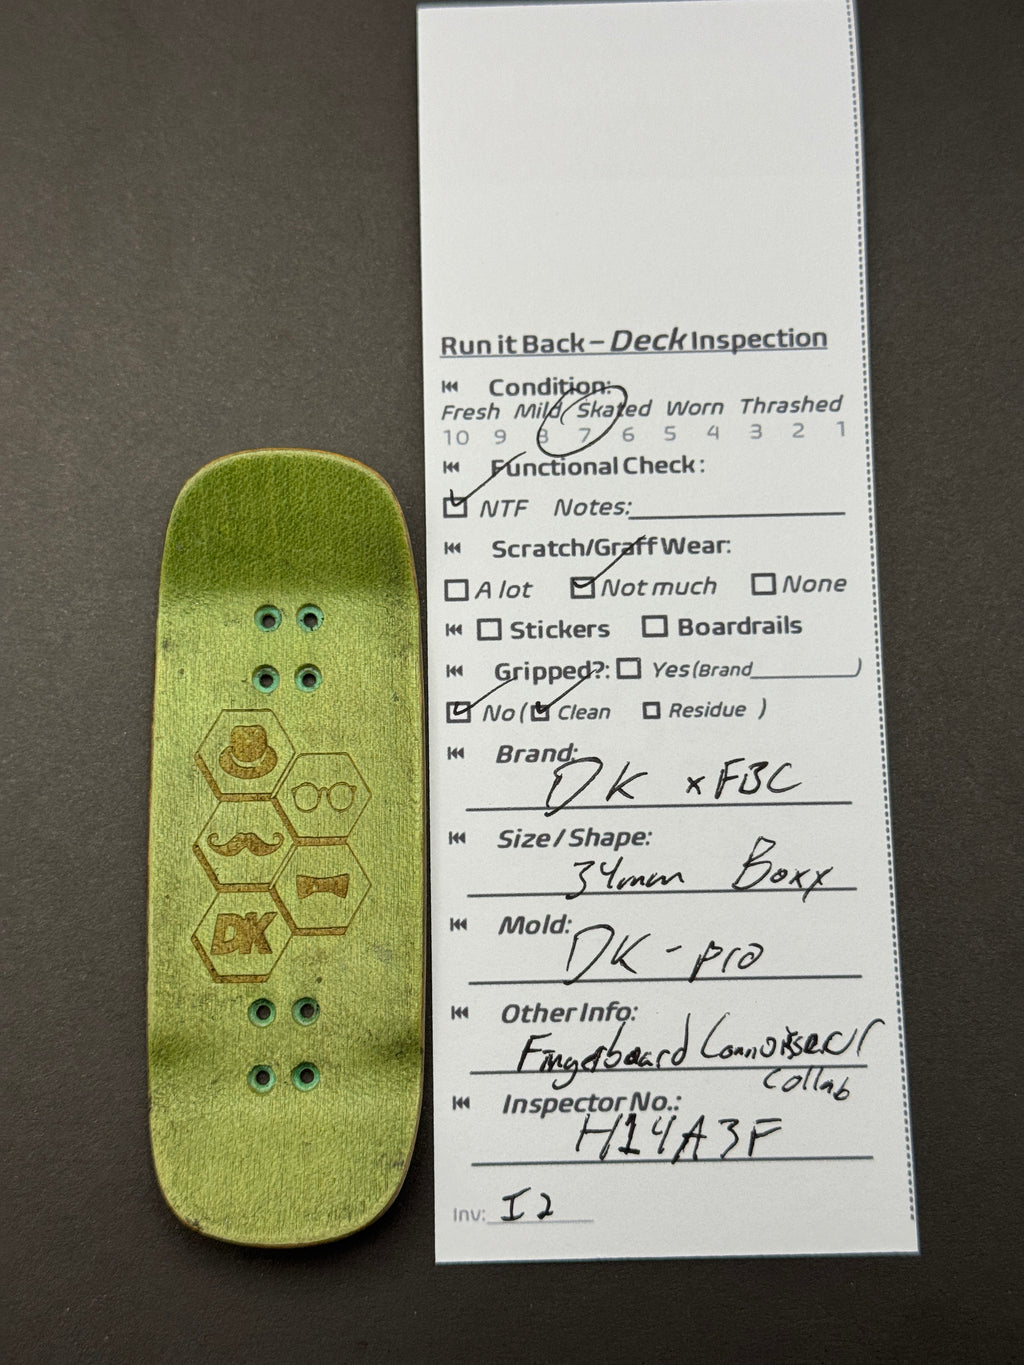 Run it Back – Deck Inspection
Condition:
Fresh Mild Skated Worn Thrashed
10 9 8 7 6 5 4 3 2 1
Functional Check:
NTF Notes:
Scratch/Graff Wear:
A lot Not much None
Stickers Boardrails
Gripped?: Yes (Brand )
No ( Clean Residue )
Brand:
DK x FBC
Size / Shape:
34mm Boxx
Mold:
DK - pro
Other Info:
Fingerboard Connoisseur
Collab
Inspector No.:
H14A3F
Inv: I2
DK